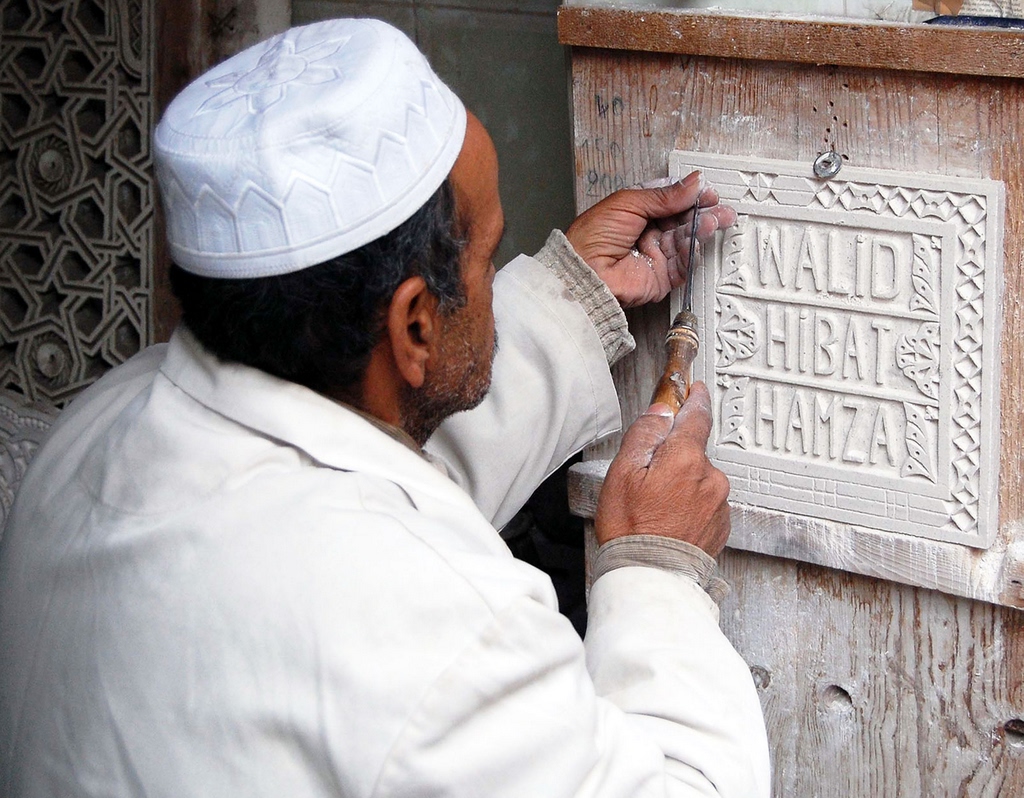 40
WALiD
HiBAT
HAMZA